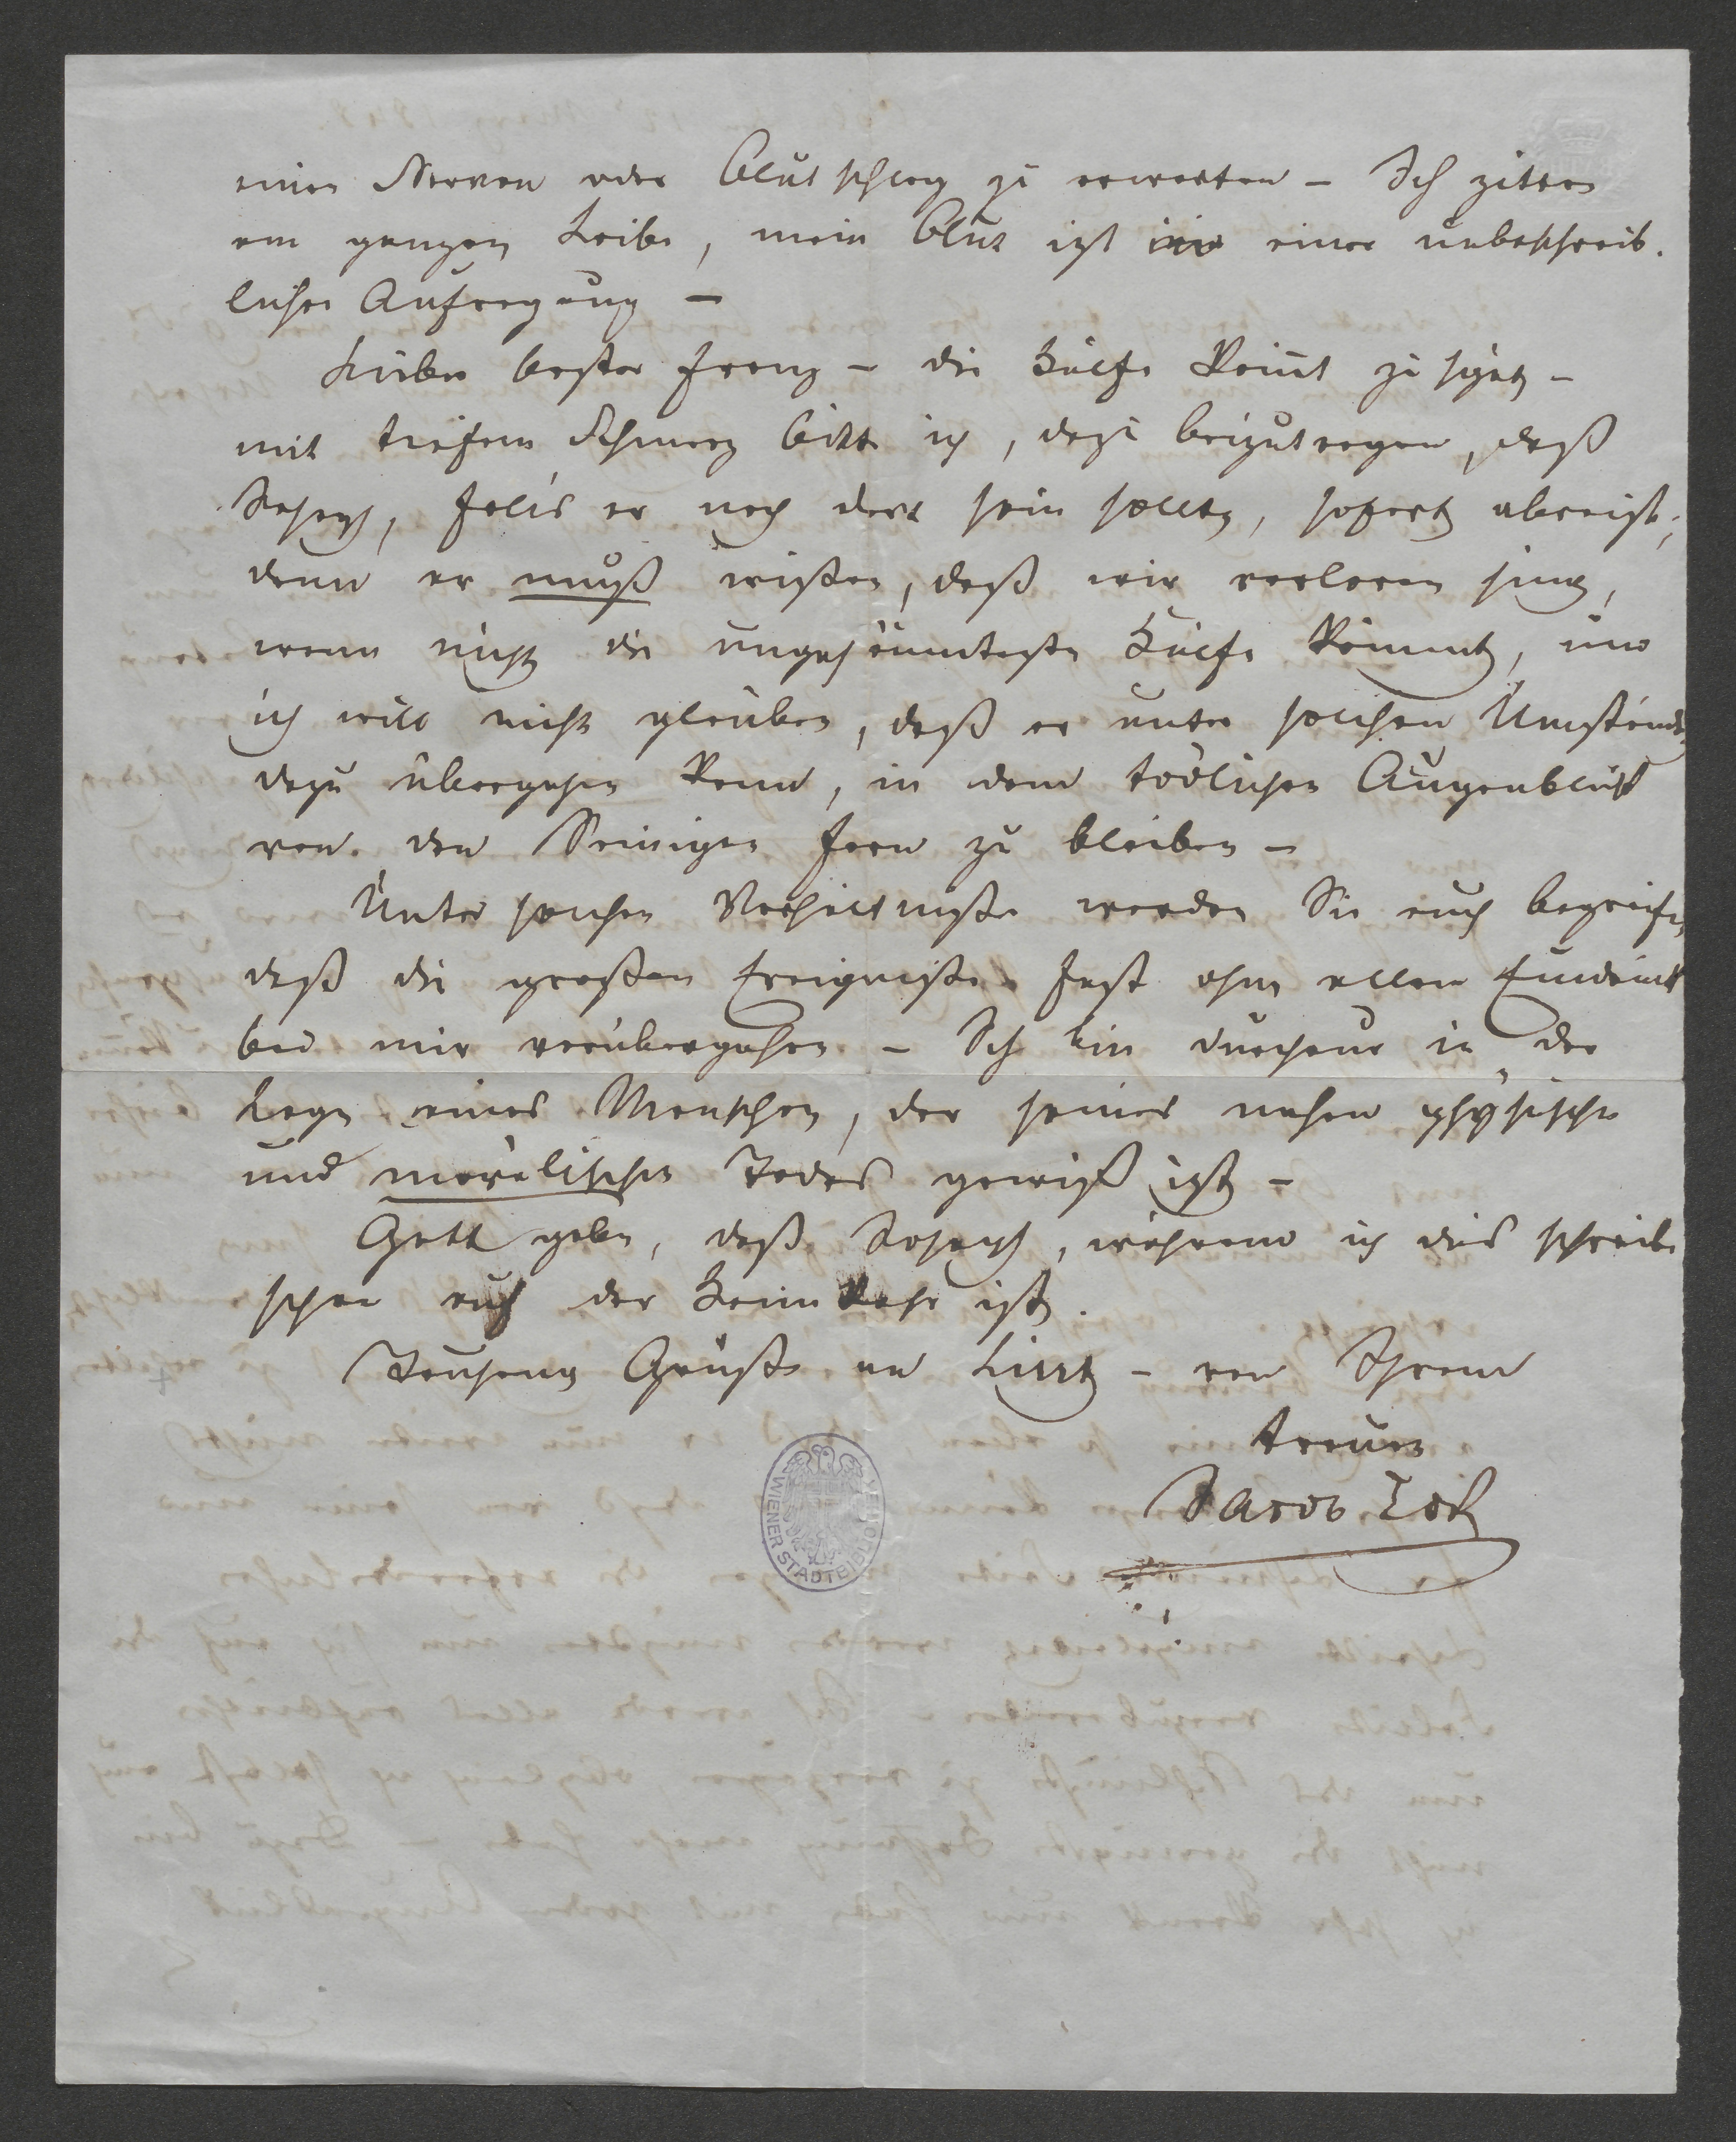 einen Nerven oder Blutschlag zu erwarten – Ich zittre
am ganzen Leibe, mein Blut ist in einer unbeschreib-
lichen Aufregung –
Lieber bester Franz – die Hülfe kömt zu spät –
mit tiefem Schmerz bitte ich, dazu beizutragen, daß
Joseph, falls er noch dort sein sollte, sofort abreist;
denn er muß wißen, daß wir verloren sind,
wenn nicht die ungesäumteste Hülfe kömmt, und
ich will nicht glauben, daß er unter solchen Umständen
dazu übergehen kann, in dem tödlichen Augenblick
von den Seinigen fern zu bleiben –
Unter solchen Verhältnißen werden Sie auch begreifen,
daß die großen Ereigniße fast ohne allen Eindruck
bei mir vorübergehen – Ich bin durchaus in der
Lage eines Menschen, der seines nahen physischen
und moralischen Todes gewiß ist –
Gott gebe, daß Joseph, während ich dies schreibe
schon auf der Heimkehr ist.
Tausend Grüße an Liszt – von Ihrem
treuen
Jacob
WIENER STADTBIBLIOTHEK